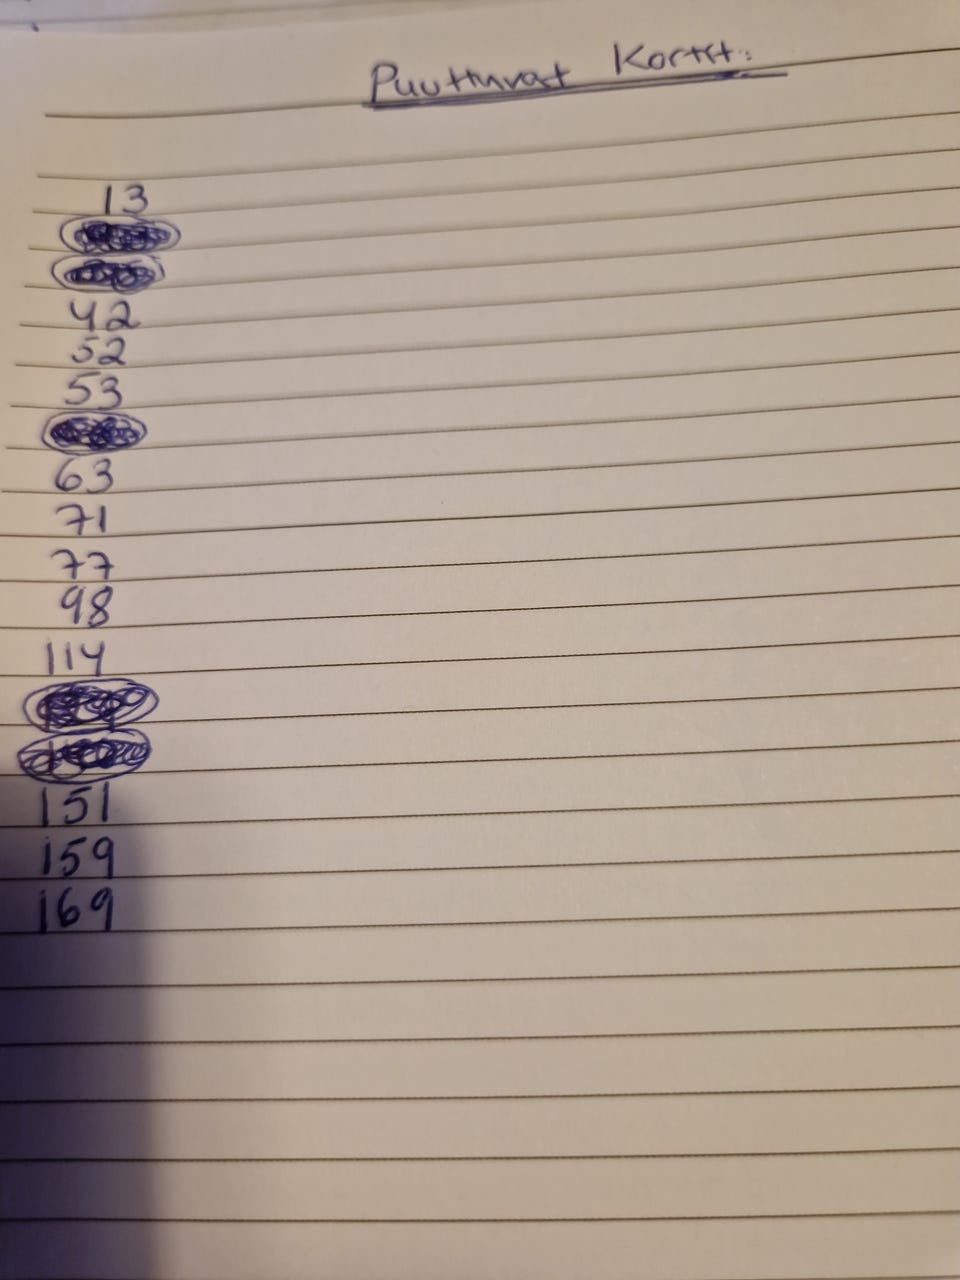 Puuttuvat Kortit:
13
42
52
53
63
71
77
98
114
151
159
169